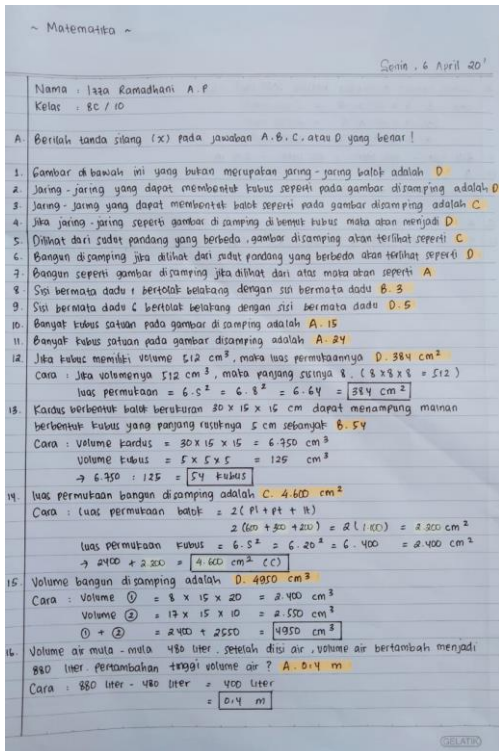 ~ Matematika ~
Senin, 6 April 20'
Nama : Izza Ramadhani A.P
Kelas : 8C / 10
A. Berilah tanda silang (x) pada jawaban A.B.C. atau D yang benar!
1. Gambar di bawah ini yang bukan merupakan jaring-jaring balok adalah D
2. Jaring-jaring yang dapat membentuk kubus seperti pada gambar disamping adalah D
3. Jaring-jaring yang dapat membentuk balok seperti pada gambar disamping adalah C
4. Jika jaring-jaring seperti gambar di samping dibentuk kubus maka akan menjadi D
5. Dilihat dari sudut pandang yang berbeda, gambar disamping akan terlihat seperti C
6. Bangun disamping jika dilihat dari sudut pandang yang berbeda akan terlihat seperti D
7. Bangun seperti gambar disamping jika dilihat dari atas maka akan seperti A
8. Sisi bermata dadu 1 bertolak belakang dengan sisi bermata dadu B. 3
9. Sisi bermata dadu 6 bertolak belakang dengan sisi bermata dadu D. 5
10. Banyak kubus satuan pada gambar di samping adalah A. 15
11. Banyak kubus satuan pada gambar disamping adalah A. 24
12. Jika kubus memiliki volume 512 cm³, maka luas permukaannya D. 384 cm²
Cara : Jika volumenya 512 cm³, maka panjang sisinya 8. (8 x 8 x 8 = 512)
luas permukaan = 6.s² = 6.8² = 6.64 = 384 cm²
13. Kardus berbentuk balok berukuran 30 x 15 x 15 cm dapat menampung mainan
berbentuk kubus yang panjang rusuknya 5 cm sebanyak B. 54
Cara : Volume kardus = 30 x 15 x 15 = 6.750 cm³
Volume kubus = 5 x 5 x 5 = 125 cm³
→ 6.750 : 125 = 54 kubus
14. luas permukaan bangun disamping adalah C. 4.600 cm²
Cara : luas permukaan balok = 2(pl + pt + lt)
2(600 + 300 + 200) = 2(1.100) = 2.200 cm²
luas permukaan kubus = 6.s² = 6.20² = 6.400 = 2.400 cm²
→ 2400 + 2.200 = 4.600 cm² (C)
15. Volume bangun di samping adalah D. 4950 cm³
Cara : Volume ① = 8 x 15 x 20 = 2.400 cm³
Volume ② = 17 x 15 x 10 = 2.550 cm³
① + ② = 2400 + 2550 = 4950 cm³
16. Volume air mula-mula 480 liter. setelah diisi air, volume air bertambah menjadi
880 liter. Pertambahan tinggi volume air? A. 0,4 m
Cara : 880 liter - 480 liter = 400 liter
= 0,4 m
GELATIK